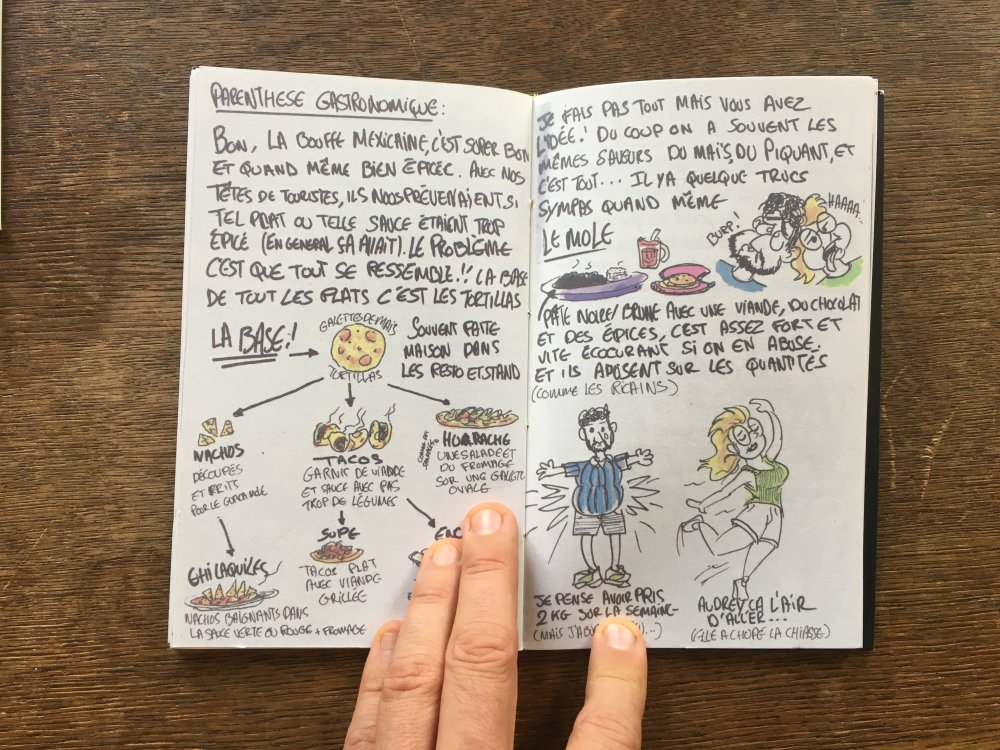 PARENTHESE GASTRONOMIQUE :
BON, LA BOUFFE MEXICAINE, C'EST SUPER BON
ET QUAND MÊME BIEN ÉPICÉE. AVEC NOS
TÊTES DE TOURISTES, ILS NOUS PRÉVENAIENT SI
TEL PLAT OU TELLE SAUCE ÉTAIENT TROP
ÉPICÉ (EN GENERAL ÇA ALLAIT). LE PROBLÈME
C'EST QUE TOUT SE RESSEMBLE !! LA BASE
DE TOUT LES PLATS C'EST LES TORTILLAS
LA BASE !
GALETTES DE MAIS
TORTILLAS
SOUVENT FAITE
MAISON DANS
LES RESTO ET STAND
NACHOS
DÉCOUPÉS
ET FRITS
POUR LE GUACAMOLE
TACOS
GARNIS DE VIANDE
ET SAUCE AVEC PAS
TROP DE LÉGUMES
HUARACHE
UNE SALADE ET
DU FROMAGE
SUR UNE GALETTE
OVALE
CHILAQUILES
NACHOS BAIGNANTS DANS
LA SAUCE VERTE OU ROUGE + FROMAGE
SOPE
TACOS PLAT
AVEC VIANDE
GRILLEE
ENC
JE FAIS PAS TOUT MAIS VOUS AVEZ
L'IDÉE ! DU COUP ON A SOUVENT LES
MÊMES SAVEURS DU MAIS, DU PIQUANT, ET
C'EST TOUT... IL Y A QUELQUE TRUCS
SYMPAS QUAND MÊME
BURP !
HAAAA...
LE MOLE
PÂTE NOIRE/BRUNE AVEC UNE VIANDE, DU CHOCOLAT
ET DES ÉPICES, C'EST ASSEZ FORT ET
VITE ÉCOEURANT SI ON EN ABUSE.
ET ILS ABUSENT SUR LES QUANTITÉS
(COMME LES RICAINS)
JE PENSE AVOIR PRIS
2 KG SUR LA SEMAINE
(MAIS J'ABU
AUDREY ÇA L'AIR
D'ALLER...
(ELLE A CHOPÉ LA CHIASSE)